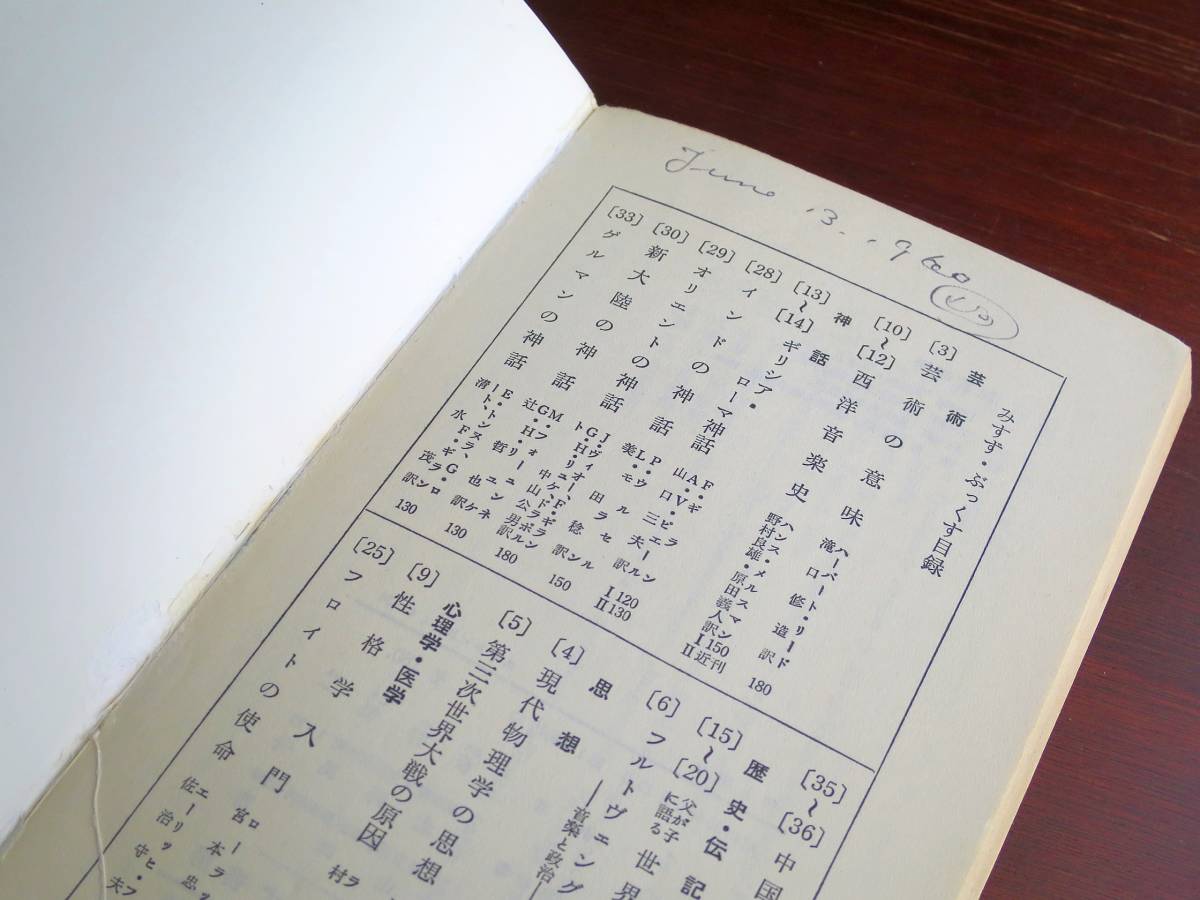 June 13. 1960
みすず・ぶっくす目録
芸術
[3] 芸術の意味 ハーバート・リード 滝口修造訳 180
[10]〜[12] 西洋音楽史 ハンス・メルスマン 野村良雄・原田義人訳 I 150 II 近刊
神話
[13]〜[14] ギリシア・ローマ神話 F・ギラン A・V・ピエール 山口三夫訳 I 120 II 130
[28] インドの神話 P・ラ 美田稔訳 150
[29] オリエントの神話 J・ヴィオー、F・ギラン G・H・リュケ、ド 中山公男訳 180
[30] 新大陸の神話 M・フォーリュンケネ G・H 辻哲也訳 130
[33] ゲルマンの神話 E・トンヌラ、G・ロート、F・ギラン 清水茂訳 130
[35]〜[36] 中国
歴史・伝記
[15]〜[20] 父が子に語る 世界
[6] フルトヴェング ―音楽と政治―
思想
[4] 現代物理学の思想
[5] 第三次世界大戦の原因
心理学・医学
[9] 性格学入門
[25] フロイトの使命